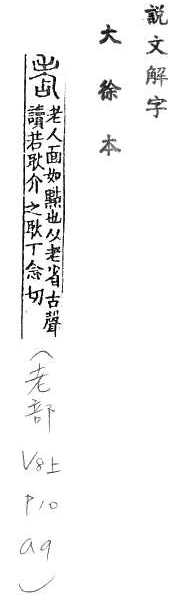 說文解字
大徐本
老人面如點也从老省占聲
讀若耿介之耿丁念切
(老部 V8上 P10 a9)